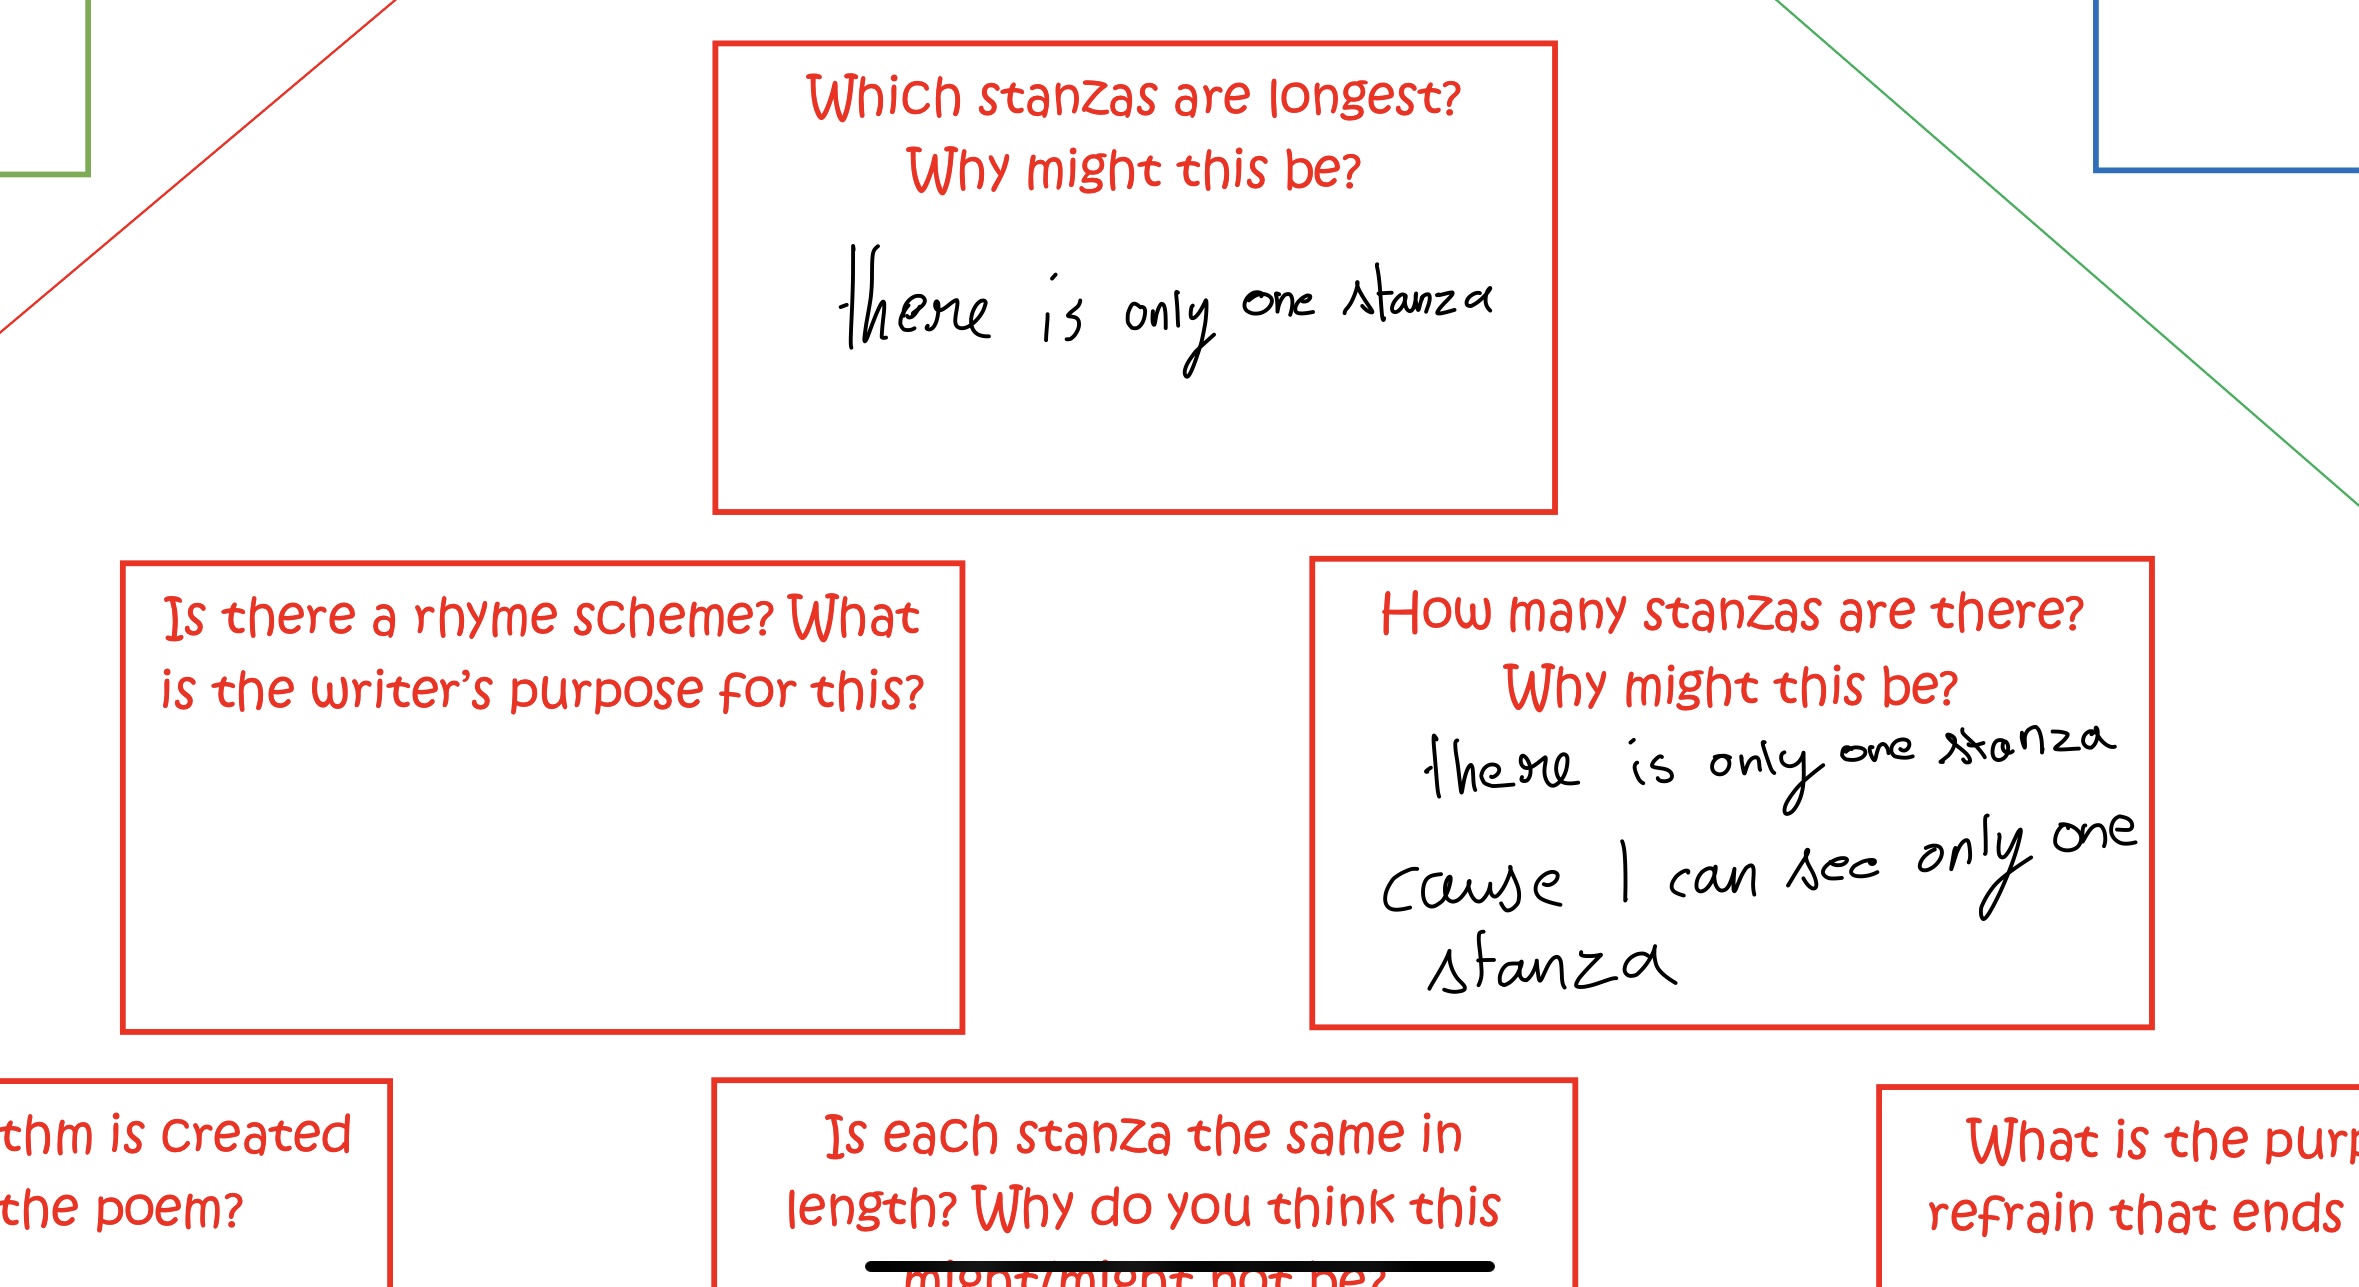 Which stanzas are longest?
Why might this be?
there is only one stanza
Is there a rhyme scheme? What
is the writer's purpose for this?
How many stanzas are there?
Why might this be?
there is only one stanza
cause I can see only one
stanza
thm is created
the poem?
Is each stanza the same in
length? Why do you think this
might/might not be?
What is the purp
refrain that ends